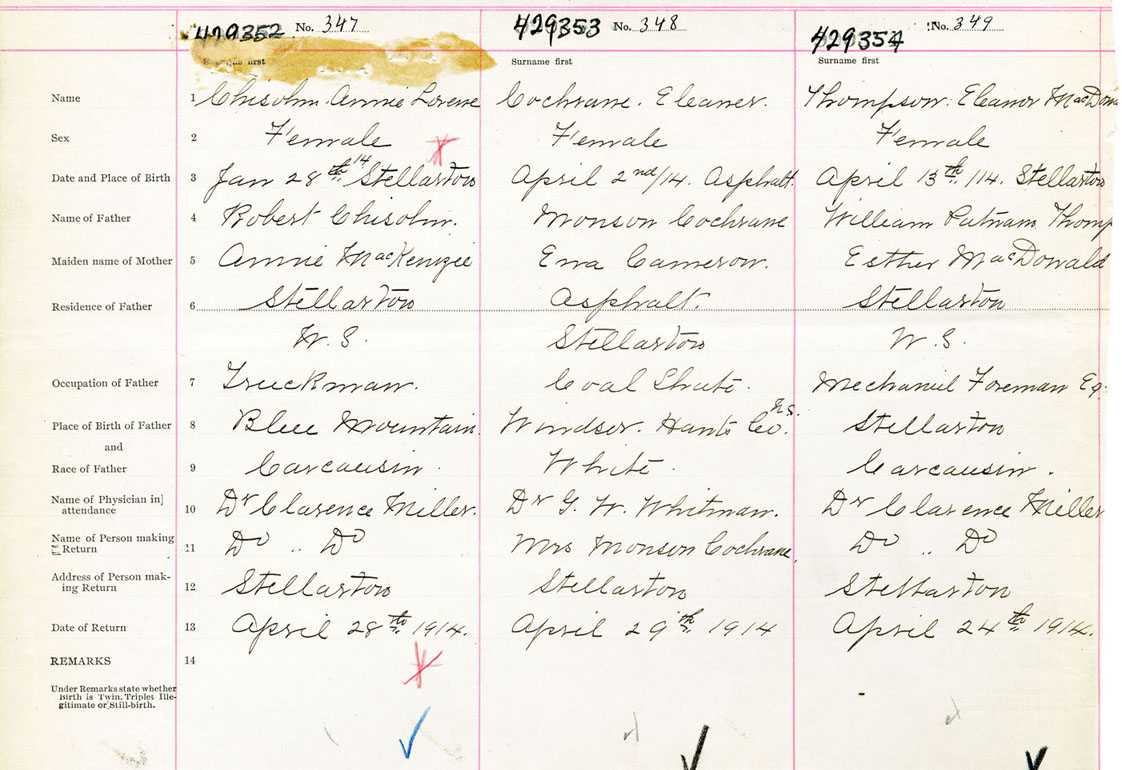 429352 No. 347 429353 No. 348 429354 No. 349
Surname first Surname first Surname first
Name 1 Chisolm Annie Lorene Cochrane. Eleaner. Thompson. Eleanor MacDon
Sex 2 Female Female Female
Date and Place of Birth 3 Jan 28th 14 Stellarton April 2nd/14. Asphalt. April 13th /14. Stellarton
Name of Father 4 Robert Chisolm. Monson Cochrane William Putnam Thomp
Maiden name of Mother 5 Annie MacKenzie Ena Cameron. Esther MacDonald
Residence of Father 6 Stellarton Asphalt. Stellarton
N.S. Stellarton N.S.
Occupation of Father 7 Truckman. Coal Shute. Mechanical Foreman Eg.
Place of Birth of Father 8 Blue Mountain. Windsor. Hants Co. N.S. Stellarton
and
Race of Father 9 Carcausin. White. Carcausin.
Name of Physician in attendance 10 Dr Clarence Miller. Dr G. W. Whitman. Dr Clarence Miller
Name of Person making Return 11 Do " Do Mrs Monson Cochrane. Do " Do
Address of Person mak-
ing Return 12 Stellarton Stellarton Stellarton
Date of Return 13 April 28th. 1914. April 29th. 1914 April 24th. 1914.
REMARKS 14
Under Remarks state whether
Birth is Twin, Triplet Ille-
gitimate or Still-birth.